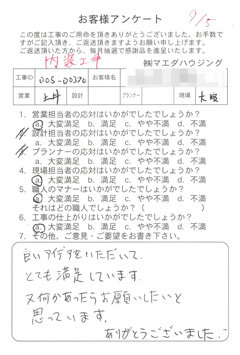 お客様アンケート
9/5
この度は工事のご用命を頂きありがとうございました。お手数で
すがご記入頂き、ご返送頂きますようお願い申し上げます。
ご返送頂いた方から、毎月抽選で感謝品を進呈いたします。
内装工事
㈱マエダハウジング
工事ID 005-00370 お客様名
営業 上井 設計 プランナー 現場 大坂
1. 営業担当者の応対はいかがでしたでしょうか?
a. 大変満足 b. 満足 c. やや不満 d. 不満
2. 設計担当者の応対はいかがでしたでしょうか?
a. 大変満足 b. 満足 c. やや不満 d. 不満
3. プランナーの応対はいかがでしたでしょうか?
a. 大変満足 b. 満足 c. やや不満 d. 不満
4. 現場担当者の応対はいかがでしたでしょうか?
a. 大変満足 b. 満足 c. やや不満 d. 不満
5. 職人のマナーはいかがでしたでしょうか?
a. 大変満足 b. 満足 c. やや不満 d. 不満
それはどの職人でしょうか?( )
6. 工事の仕上がりはいかがでしたでしょうか?
a. 大変満足 b. 満足 c. やや不満 d. 不満
7. その他、ご意見・ご要望をお書き下さい。
良い作行をいただいて、
とても満足しています。
又何かあったらお願いしたいと
思っています。
ありがとうございました。